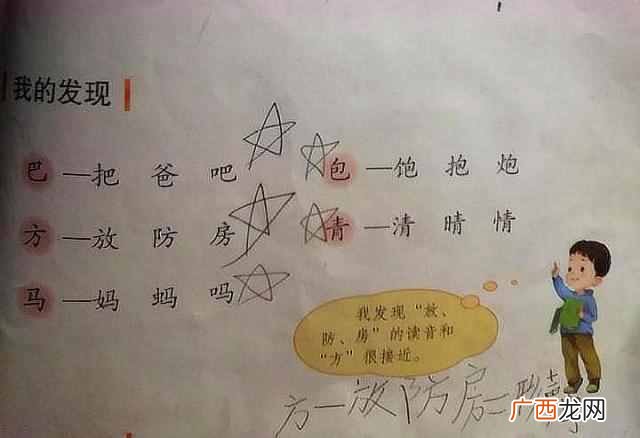 我的发现
巴—把 爸 吧 包—饱 抱 炮
方—放 防 房 青—清 晴 情
马—妈 蚂 吗
我发现“放、
防、房”的读音和
“方”很接近。
方一放防房二形声字
广西龙网